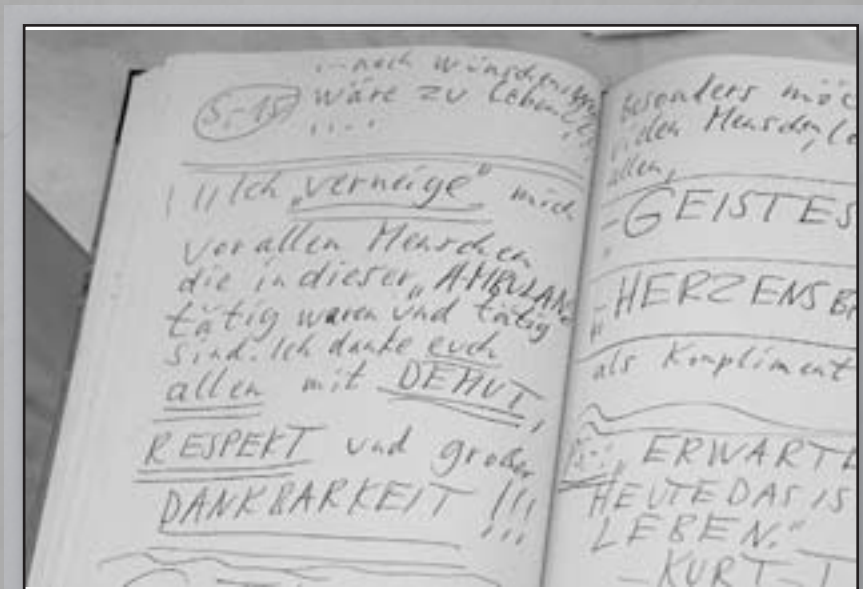 ...noch
S.-15 wäre zu Leben!
....
!! Ich „verneige" mich
vor allen Menschen
die in dieser „AMBULAN
tätig waren und tätig
sind. Ich danke euch
allen mit DEMUT,
RESPEKT und großer
DANKBARKEIT !!!
...
besonders
den Menschen,
allen,
- GEISTES
„HERZENS
als Kompliment
ERWARTE
HEUTE DAS IS
LEBEN."
- KURT - T